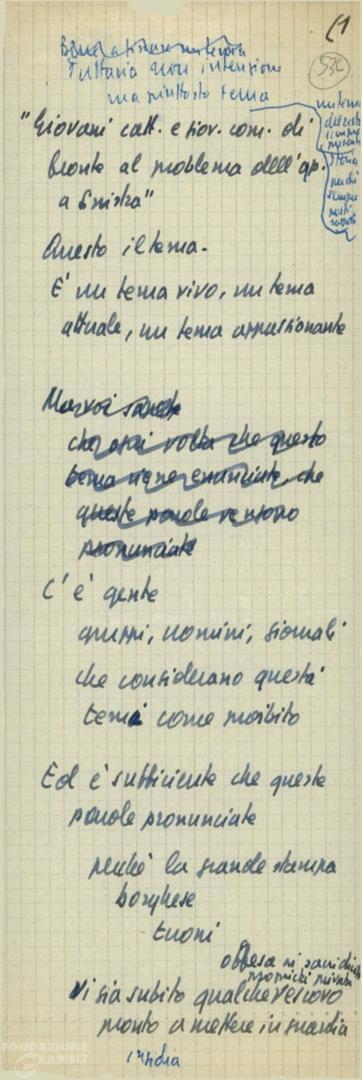 (1
536
Tuttavia non intenzione
ma piuttosto tema
"Giovani catt. e giov. com. di
fronte al problema dell'ap.
a sinistra"
un tema
storia
sempre
Questo il tema.
E' un tema vivo, un tema
attuale, un tema appassionante
Ma voi sapete
che ogni volta che questo
tema viene enunciato, che
queste parole vengono
pronunciate
C'è gente
gruppi, uomini, giornali
che considerano questi
temi come proibito
Ed è sufficiente che queste
parole pronunciate
perché la grande stampa
borghese
tuoni
offesa ai sacri diritti
proprietà privata
Vi sia subito qualche vescovo
pronto a mettere in guardia
insidia
FONDAZIONE
GRAMSCI